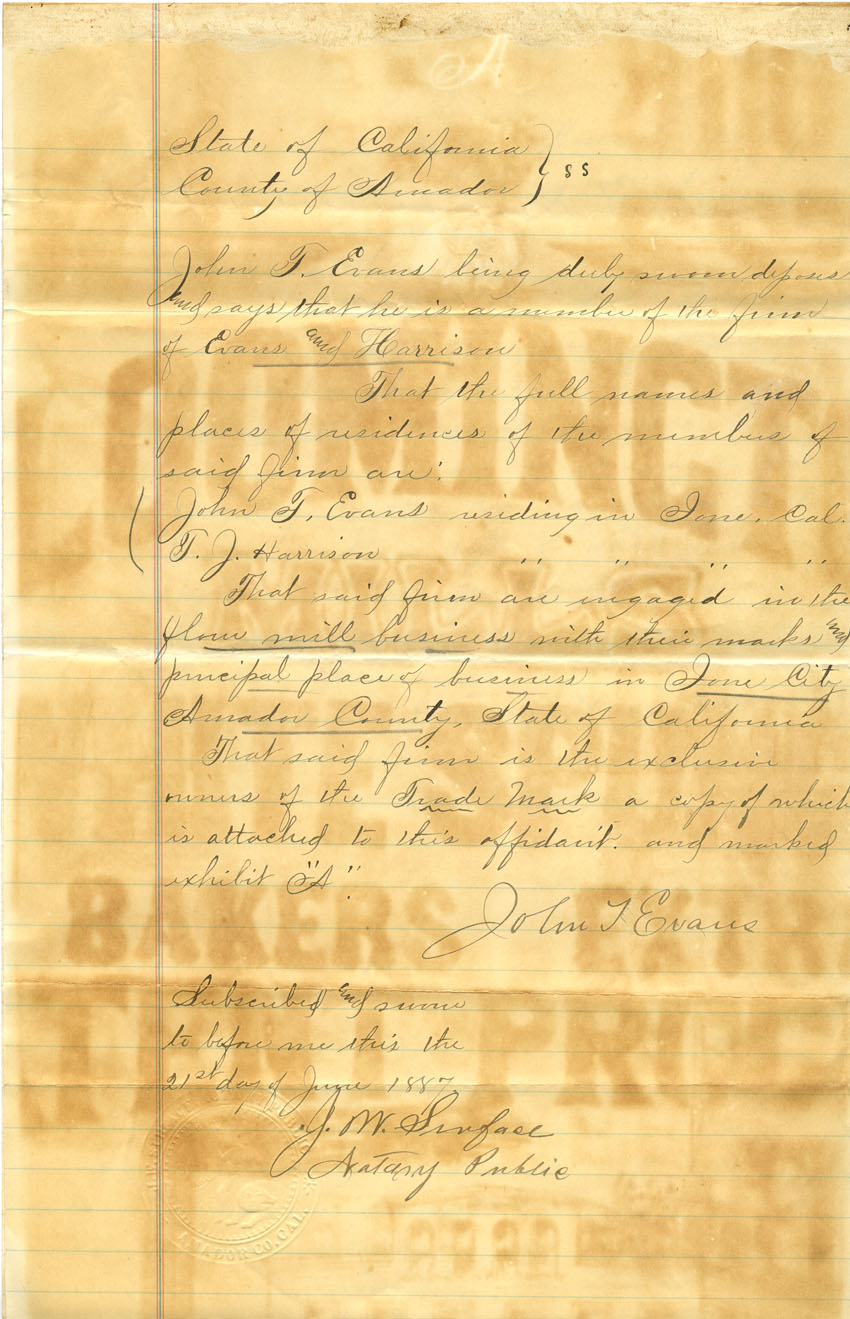 A
State of California } ss
County of Amador
John T. Evans being duly sworn deposes
and says that he is a member of the firm
of Evans and Harrison
That the full names and
places of residences of the members of
said firm are:
John T. Evans residing in Ione, Cal.
T. J. Harrison " " " "
That said firm are engaged in the
flour mill business with their marks and
principal place of business in Ione City
Amador County, State of California
That said firm is the exclusive
owners of the Trade Mark a copy of which
is attached to this affidavit. and marked
exhibit "A"
John T Evans
Subscribed and sworn
to before me this the
21st day of June 1887
J. W. Surface
Notary Public
AMADOR CO. CAL.
BAKERS